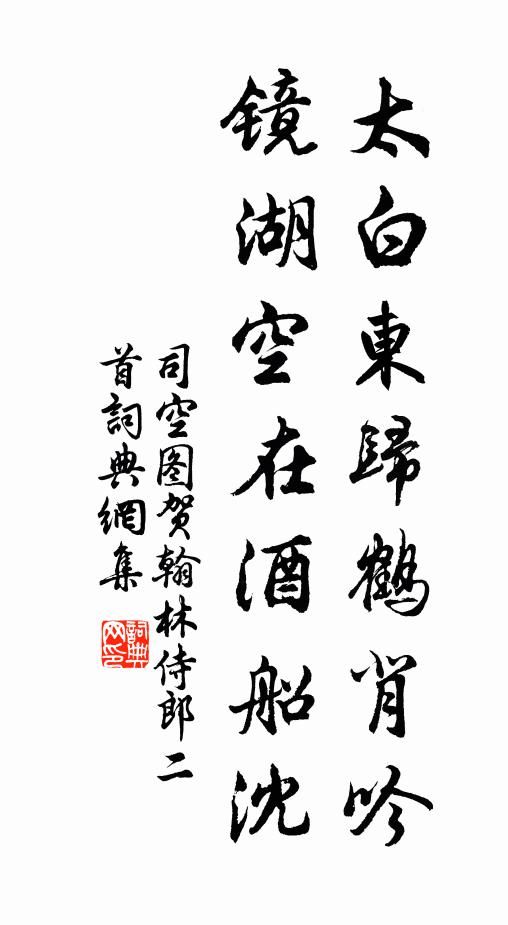 太白東歸鶴背吟
镜湖空在酒船沈
司空图贺翰林侍郎二
首詞典網集
詞典
网印